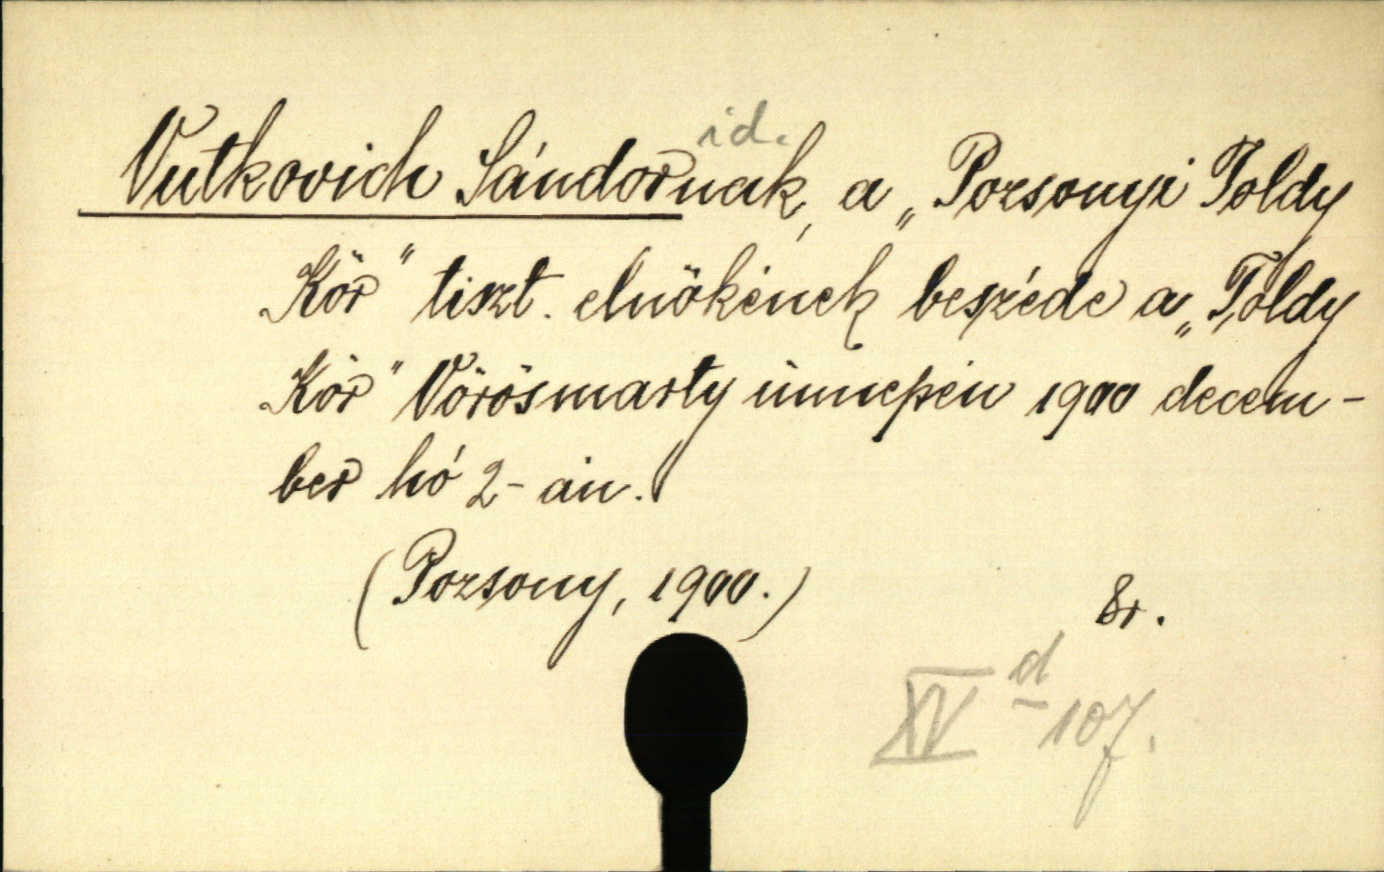 id.
Vutkovich Sándornak, a „Pozsonyi Toldy
Kör" tiszt. elnökének beszéde a „Toldy
Kör" Vörösmarty ünnepén 1900 decem-
ber hó 2-án.
(Pozsony, 1900.)
8r.
XV d 107.